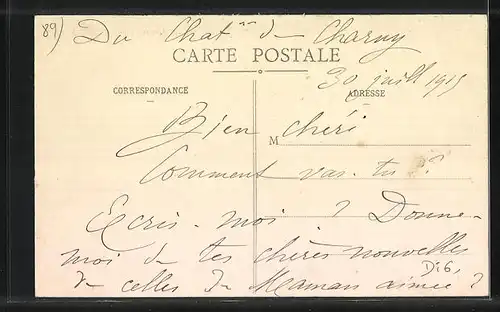 89) Du Chat^au de Charny
CARTE POSTALE
30 juill 1915
CORRESPONDANCE
ADRESSE
Bien chéri
M
Comment vas-tu ?
Ecris-moi ? Donne-
moi de tes chères nouvelles
de celles de Maman aimée ?
D:6,